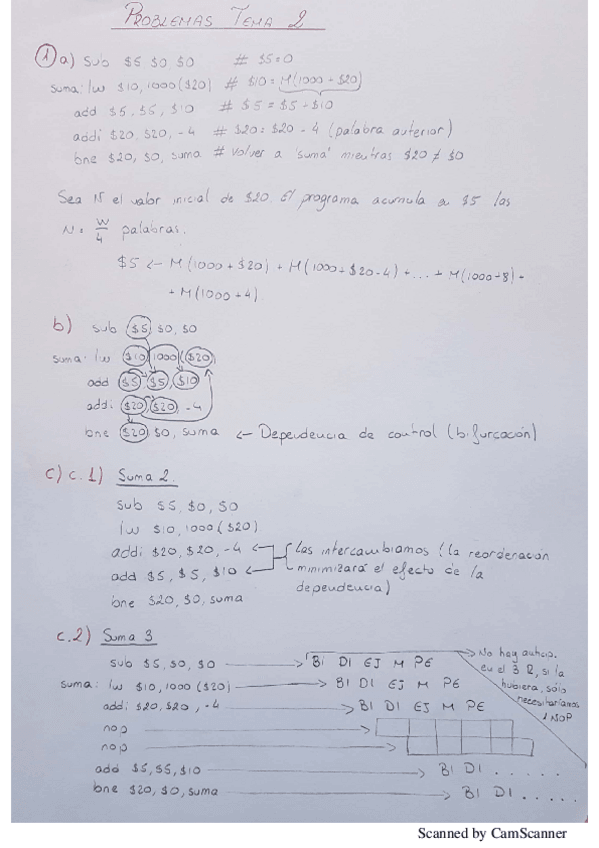 PROBLEMAS TEMA 2
1 a) sub $5 $0, $0 # $5=0
suma: lw $10, 1000($20) # $10=M(1000+$20)
add $5, $5, $10 # $5=$5+$10
addi $20, $20, -4 # $20=$20-4 (palabra anterior)
bne $20, $0, suma # Volver a 'suma' mientras $20 ≠ $0
Sea N el valor inicial de $20. El programa acumula a $5 las
N = W/4 palabras.
$5 ← M(1000+$20) + M(1000+$20-4) + ... + M(1000+8) +
+ M(1000+4).
b) sub $5, $0, $0
suma: lw $10, 1000($20)
add $5, $5, $10
addi $20, $20, -4
bne $20, $0, suma ← Dependencia de control (bifurcación)
c) c.1) Suma 2.
sub $5, $0, $0
lw $10, 1000($20)
addi $20, $20, -4 ← Las intercambiamos (la reordenación
add $5, $5, $10 ← minimizará el efecto de la
dependencia)
bne $20, $0, suma
c.2) Suma 3
sub $5, $0, $0 → BI DI EJ M PE
suma: lw $10, 1000($20) → BI DI EJ M PE
addi $20, $20, -4 → BI DI EJ M PE
nop →
nop →
add $5, $5, $10 → BI DI . . . . .
bne $20, $0, suma → BI DI . . . . .
→ No hay anticip.
en el 3 R, si la
hubiera, sólo
necesitaríamos
1 NOP
Scanned by CamScanner